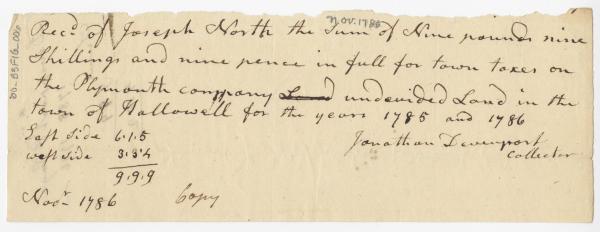 Nov. 1786
Recd. of Joseph North the Sum of Nine pounds nine
Shillings and nine pence in full for town taxes on
the Plymouth company Land undevided Land in the
town of Hallowell for the years 1785 and 1786
East Side 6.1.5
west side 3.8.4
9.9.9
Jonathan Devenport
Collector
Novr 1786 Copy